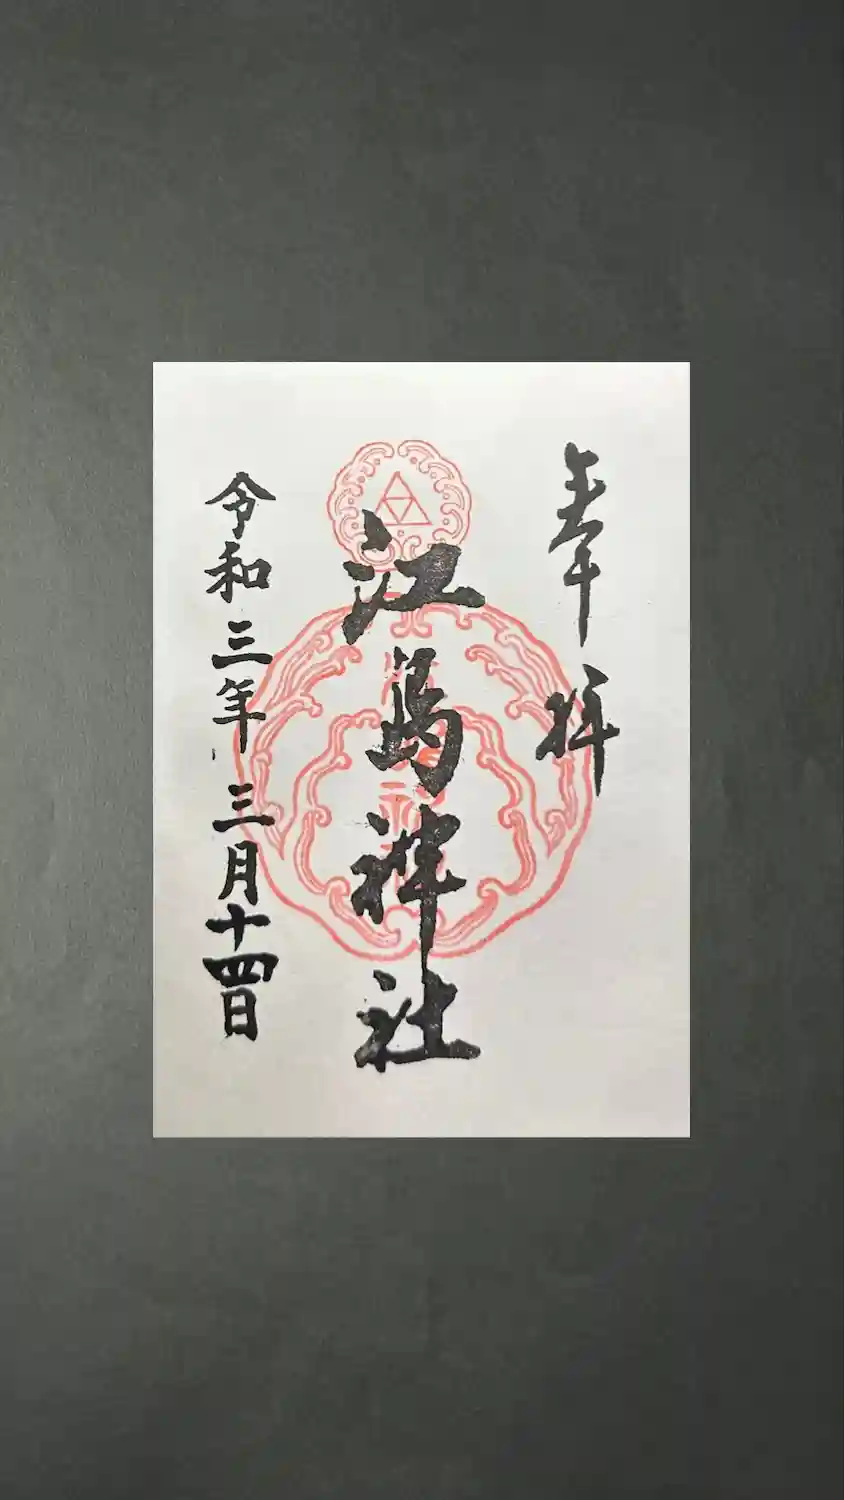 奉拝
江島神社
令和三年三月十四日